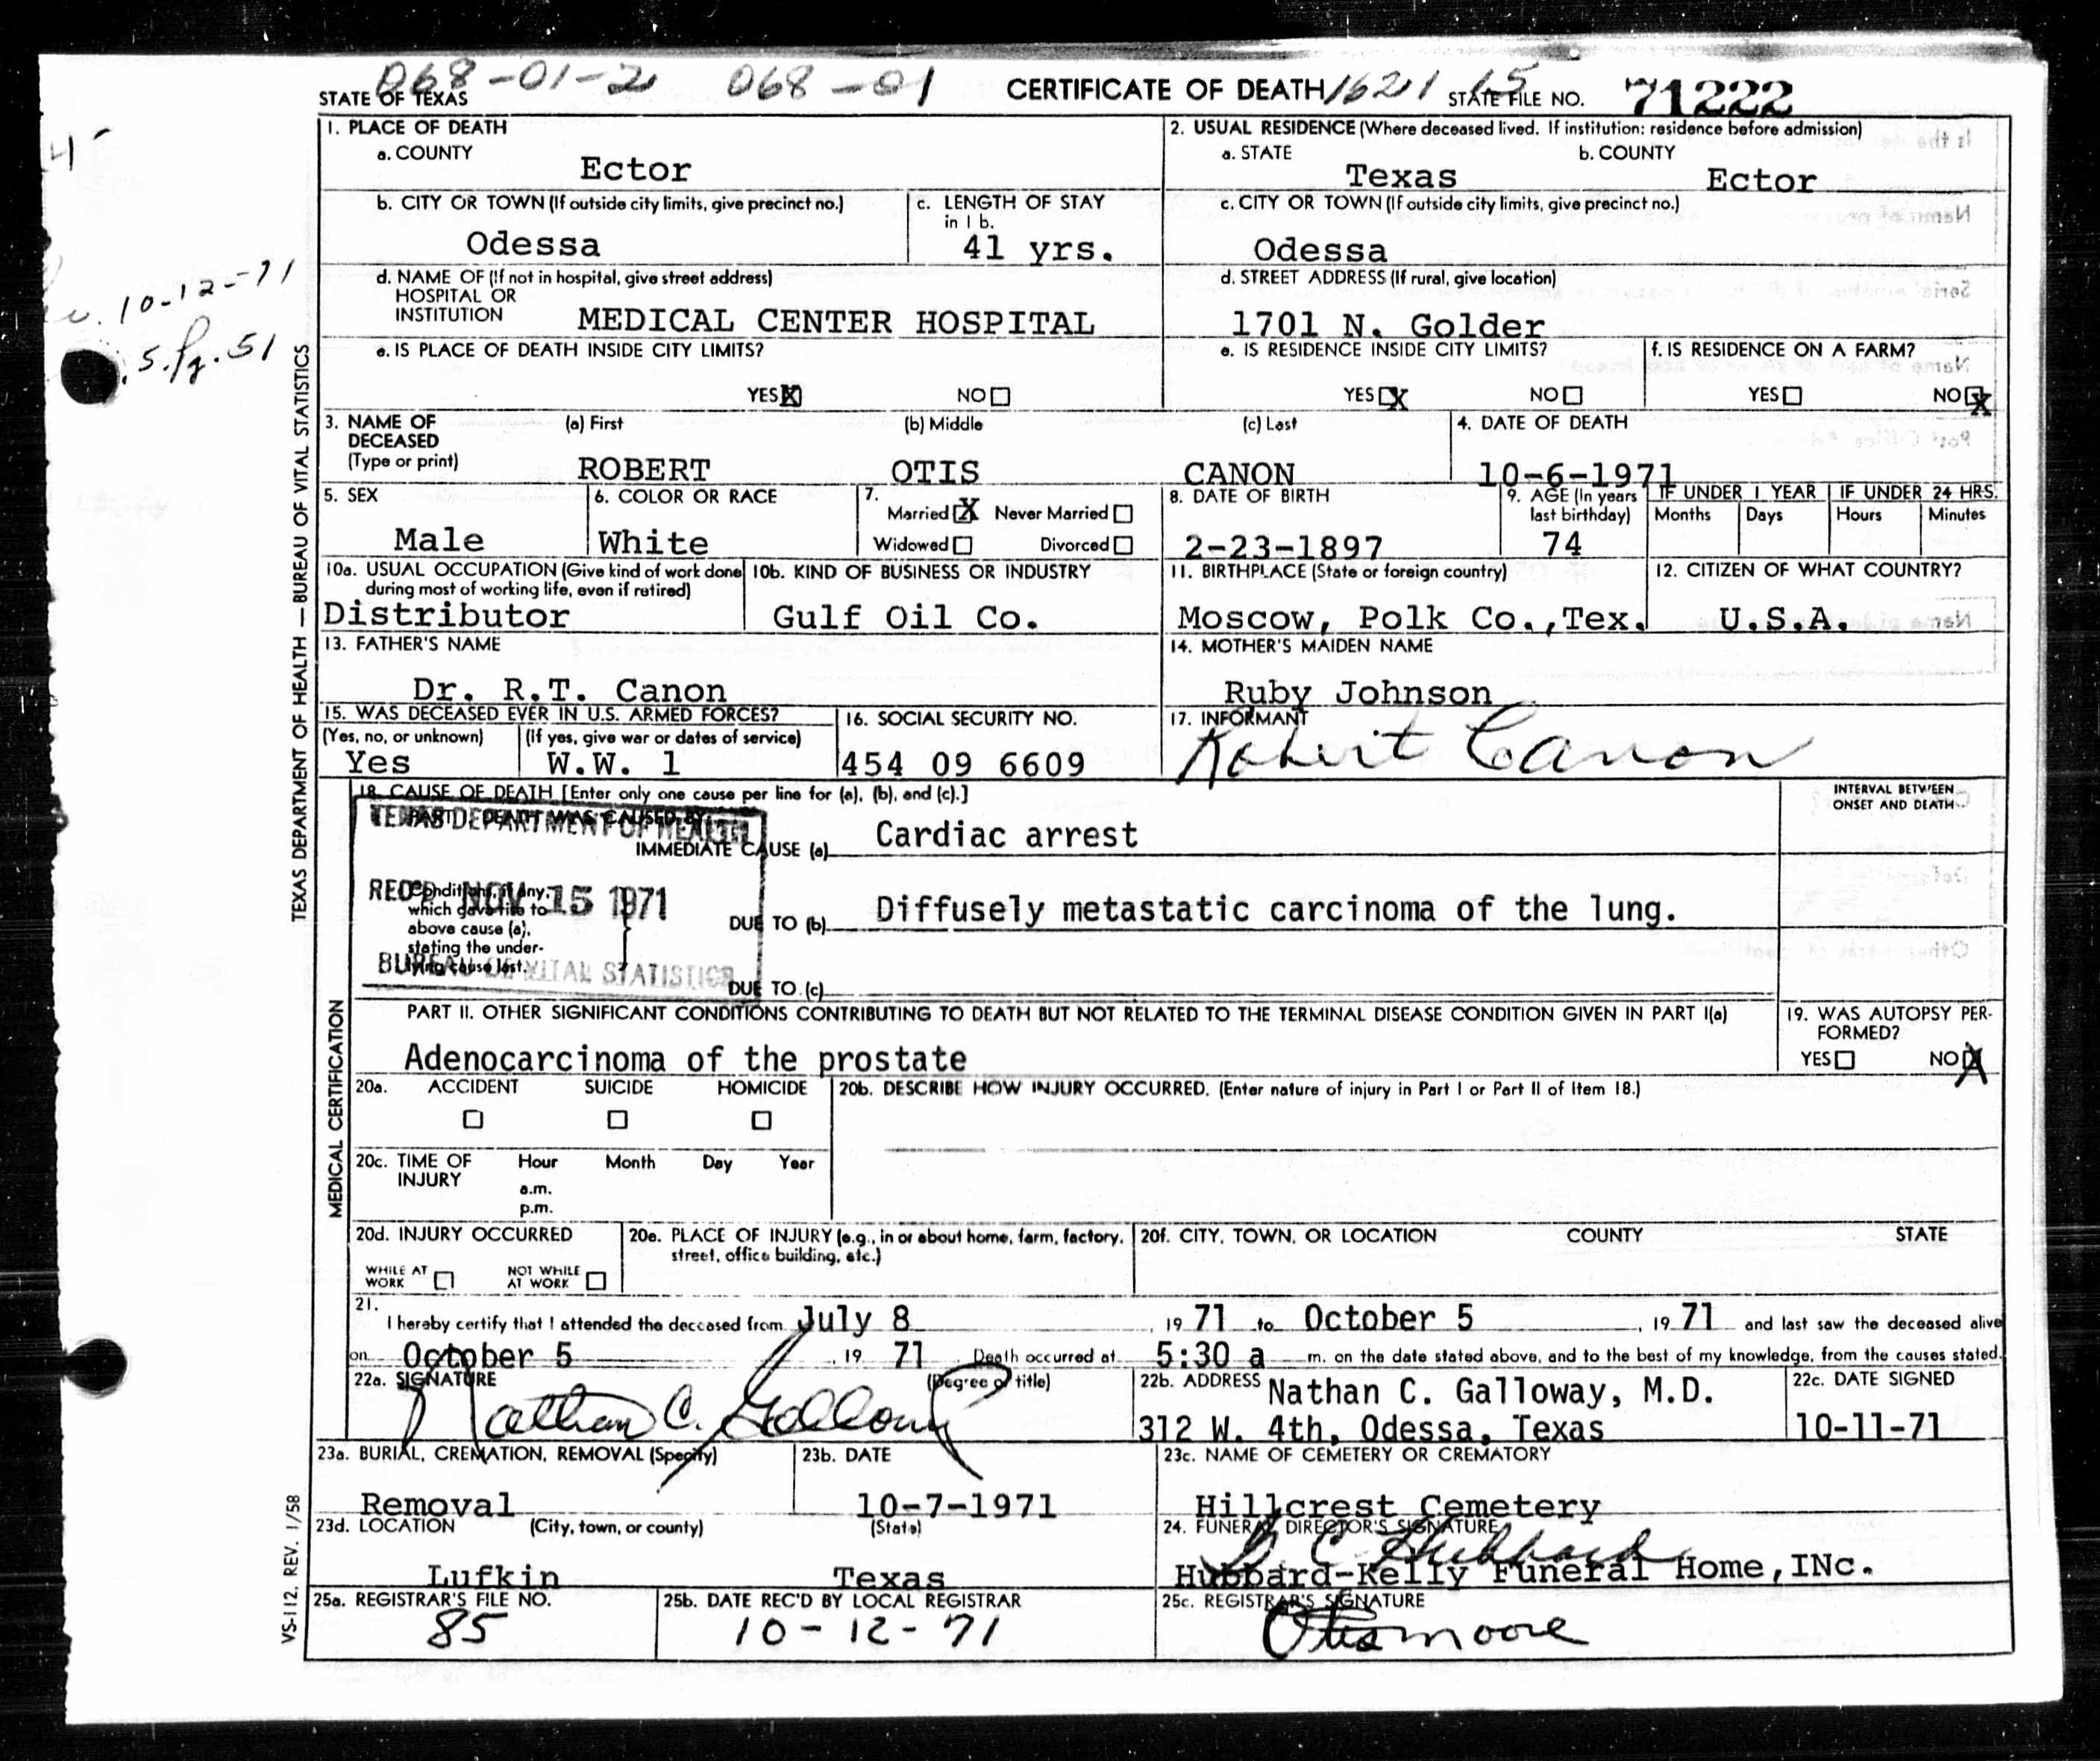 068-01-2 068-01 CERTIFICATE OF DEATH 1621 15 STATE FILE NO. 71222
STATE OF TEXAS
1. PLACE OF DEATH
a. COUNTY
Ector
2. USUAL RESIDENCE (Where deceased lived. If institution: residence before admission)
a. STATE b. COUNTY
Texas Ector
b. CITY OR TOWN (If outside city limits, give precinct no.)
Odessa
c. LENGTH OF STAY
in 1 b.
41 yrs.
c. CITY OR TOWN (If outside city limits, give precinct no.)
Odessa
d. NAME OF (If not in hospital, give street address)
HOSPITAL OR
INSTITUTION MEDICAL CENTER HOSPITAL
d. STREET ADDRESS (If rural, give location)
1701 N. Golder
e. IS PLACE OF DEATH INSIDE CITY LIMITS?
YES X NO
e. IS RESIDENCE INSIDE CITY LIMITS?
YES X NO
f. IS RESIDENCE ON A FARM?
YES NO X
10-12-71
S. Pg. 51
3. NAME OF DECEASED
(Type or print)
(a) First (b) Middle (c) Last
ROBERT OTIS CANON
4. DATE OF DEATH
10-6-1971
5. SEX
Male
6. COLOR OR RACE
White
7.
Married X Never Married
Widowed Divorced
8. DATE OF BIRTH
2-23-1897
9. AGE (In years
last birthday)
74
IF UNDER 1 YEAR IF UNDER 24 HRS.
Months Days Hours Minutes
10a. USUAL OCCUPATION (Give kind of work done
during most of working life, even if retired)
Distributor
10b. KIND OF BUSINESS OR INDUSTRY
Gulf Oil Co.
11. BIRTHPLACE (State or foreign country)
Moscow, Polk Co.,Tex.
12. CITIZEN OF WHAT COUNTRY?
U.S.A.
13. FATHER'S NAME
Dr. R.T. Canon
14. MOTHER'S MAIDEN NAME
Ruby Johnson
15. WAS DECEASED EVER IN U.S. ARMED FORCES?
(Yes, no, or unknown) (If yes, give war or dates of service)
Yes W.W. 1
16. SOCIAL SECURITY NO.
454 09 6609
17. INFORMANT
Robert Canon
TEXAS DEPARTMENT OF HEALTH — BUREAU OF VITAL STATISTICS
MEDICAL CERTIFICATION
18. CAUSE OF DEATH [Enter only one cause per line for (a), (b), and (c).]
INTERVAL BETWEEN
ONSET AND DEATH
PART I. DEATH WAS CAUSED BY
IMMEDIATE CAUSE (a) Cardiac arrest
Conditions, if any,
which gave rise to
above cause (a),
stating the under-
lying cause last.
DUE TO (b) Diffusely metastatic carcinoma of the lung.
DUE TO (c)
TEXAS DEPARTMENT OF HEALTH
REC'D NOV 15 1971
BUREAU OF VITAL STATISTICS
PART II. OTHER SIGNIFICANT CONDITIONS CONTRIBUTING TO DEATH BUT NOT RELATED TO THE TERMINAL DISEASE CONDITION GIVEN IN PART I(a)
Adenocarcinoma of the prostate
19. WAS AUTOPSY PER-
FORMED?
YES NO X
20a. ACCIDENT SUICIDE HOMICIDE
20b. DESCRIBE HOW INJURY OCCURRED. (Enter nature of injury in Part I or Part II of Item 18.)
20c. TIME OF
INJURY
Hour Month Day Year
a.m.
p.m.
20d. INJURY OCCURRED
WHILE AT
WORK
NOT WHILE
AT WORK
20e. PLACE OF INJURY (e.g., in or about home, farm, factory,
street, office building, etc.)
20f. CITY, TOWN, OR LOCATION COUNTY STATE
21.
I hereby certify that I attended the deceased from July 8, 19 71 to October 5, 19 71 and last saw the deceased alive
on October 5, 19 71. Death occurred at 5:30 a m. on the date stated above, and to the best of my knowledge, from the causes stated.
22a. SIGNATURE (Degree or title)
Nathan C. Galloway
22b. ADDRESS Nathan C. Galloway, M.D.
312 W. 4th, Odessa, Texas
22c. DATE SIGNED
10-11-71
23a. BURIAL, CREMATION, REMOVAL (Specify)
Removal
23b. DATE
10-7-1971
23c. NAME OF CEMETERY OR CREMATORY
Hillcrest Cemetery
23d. LOCATION (City, town, or county) (State)
Lufkin Texas
24. FUNERAL DIRECTOR'S SIGNATURE
Hubbard-Kelly Funeral Home,INc.
25a. REGISTRAR'S FILE NO.
85
25b. DATE REC'D BY LOCAL REGISTRAR
10-12-71
25c. REGISTRAR'S SIGNATURE
Otis Moore
VS-112. REV. 1/58